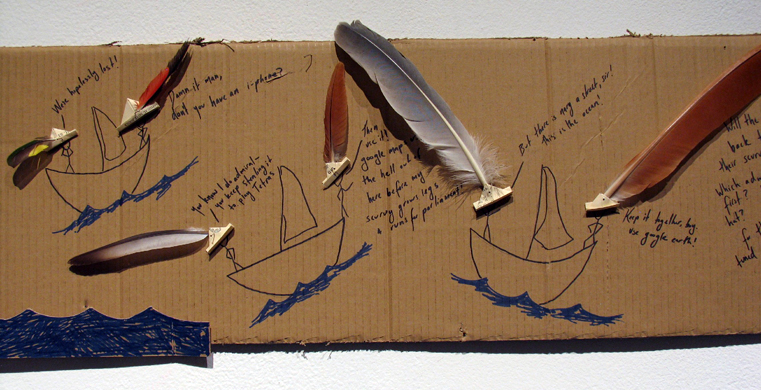 We're hopelessly lost!
Damn it man,
dont you have an i-phone?
you know I do admiral-
you keep stealing it
to play Tetris
Then
use it!
google map
the hell out of
here before my
scurvy grows legs
& runs for parliament!
But there is nary a street, sir!
This is the ocean!
Keep it together, boy.
Use google earth!
Will the
back t
their scurv
Which adm
first?
hat?
fo th
tuned